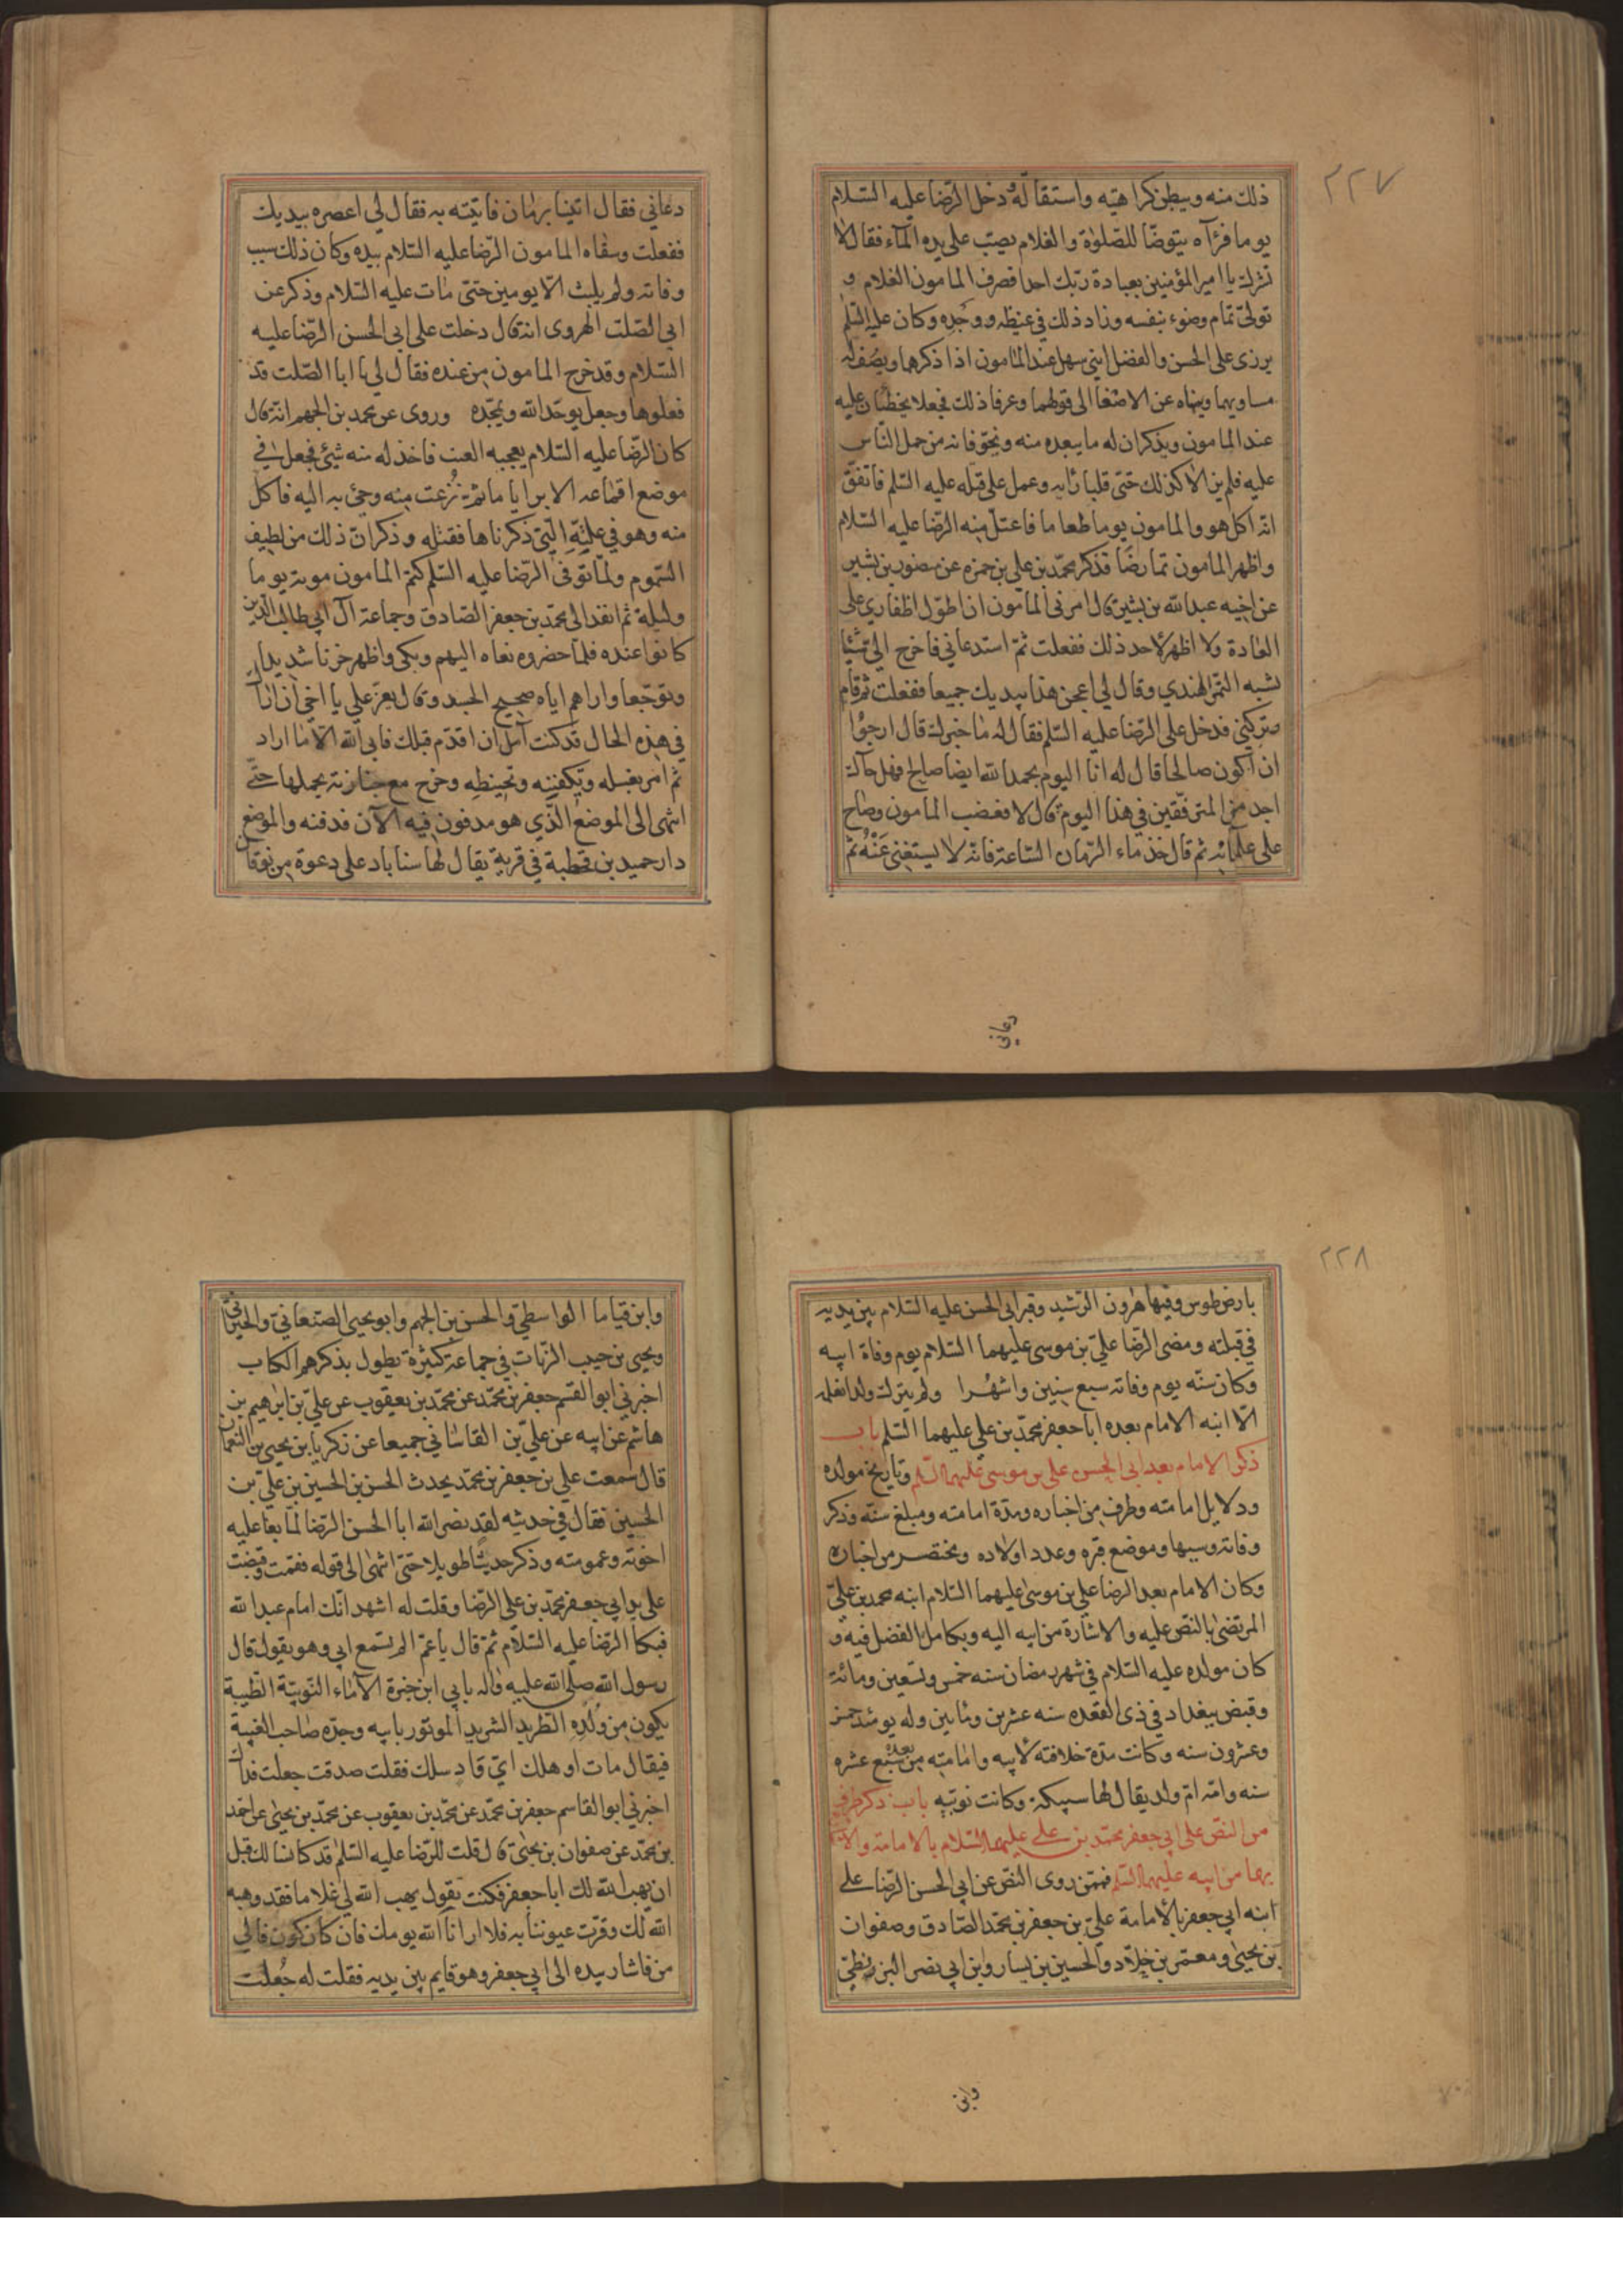 ٢٢٧
ذلك منه ويبطن كراهيته واستثقاله دخل الرّضا عليه السّلام
يوما فرآه يتوضّا للصّلوة والغلام يصبّ على يده المآء فقال لا
تشرك يا امير المؤمنين بعبادة ربّك احدا فصرف المامون الغلام و
تولّى تمام وضوء بنفسه وزاد ذلك في غيظه ووجده وكان عليه السّلم
يزرى على الحسن والفضل ابنى سهل عند المامون اذا ذكرهما ويصف له
مساويهما وينهاه عن الاصغا الى قولهما وعرفا ذلك فجعلا يحطبان عليه
عند المامون ويذكران له ما يبعده منه ويخوّفانه من حمل النّاس
عليه فلم يزالا كذلك حتّى قلبا رايه وعمل على قتله عليه السّلم فاتفق
انّه اكل هو والمامون يوما طعاما فاعتلّ منه الرّضا عليه السّلام
واظهر المامون تمارضًا فذكر محمّد بن علي بن حمزه عن منصور بن بشير
عن اخيه عبد الله بن بشير قال امرنى المامون ان اطوّل اظفاري على
العادة ولا اظهر لاحد ذلك ففعلت ثمّ استدعاني فاخرج اليّ شيئا
يشبه التمر الهندي وقال لي اعجن هذا بيديك جميعا ففعلت ثم قام
وتركني فدخل على الرّضا عليه السّلم فقال له ما خبرك قال ارجوا
ان اكون صالحا قال له انا اليوم بحمد الله ايضا صالح فهل جآك
احد من المترفّقين في هذا اليوم قال لا فغضب المامون وصاح
على غلمانه ثم قال خذ ماء الرّمان السّاعة فانّه لا يستغنى عنه ثمّ
دعاني
دعاني فقال اتينا برمان فاتيته به فقال لي اعصره بيديك
ففعلت وسقاه المامون الرّضا عليه السّلام بيده وكان ذلك سبب
وفاته ولم يلبث الّا يومين حتّى مات عليه السّلام وذكر عن
ابي الصّلت الهروى انه قال دخلت على ابي الحسن الرّضا عليه
السّلام وقد خرج المامون من عنده فقال لي يا ابا الصّلت قد
فعلوها وجعل يوحّد الله ويمجّده وروى عن محمد بن الجهم انّه قال
كان الرّضا عليه السّلام يعجبه العنب فاخذ له منه شيئ فجعل في
موضع اقماعه الابر اياما ثمّ نُزعت منه وجئ به اليه فاكل
منه وهو في علّته الّتي ذكرناها فقتله وذكر انّ ذلك من لطيف
السّموم ولمّا توفى الرّضا عليه السّلم كتم المامون موته يوما
وليلة ثم انفذ الى محمّد بن جعفر الصّادق وجماعة آل ابي طالب الّذين
كانوا عنده فلمّا حضروه نعاه اليهم وبكى واظهر حزنا شديدا
وتوجّعا واراهم اياه صحيح الجسد وقال يعزّ علي يا اخي ان اراك
في هذه الحال قد كنت آمل ان اقدّم قبلك فابى الله الّا ما اراد
ثم امر بغسله وتكفينه وتحنيطه وخرج مع جنازته يحملها حتّى
انتهى الى الموضع الّذي هو مدفون فيه الآن فدفنه والموضع
دار حميد بن قحطبة في قرية يقال لها سناباد على دعوة من نوقان
٢٢٨
بارض طوس وفيها هرون الرّشيد وقبر ابي الحسن عليه السّلام بين يديه
في قبلته ومضى الرّضا عليّ بن موسى عليهما السّلام يوم وفاة ابيه
وكان سنّه يوم وفاته سبع سنين واشهُرا ولم يترك ولدا نعلمه
الّا ابنه الامام بعده ابا جعفر محمّد بن علي عليهما السّلم باب
ذكر الامام بعد ابى الحسن على بن موسى عليهما السّلم وتاريخ مولده
ودلايل امامته وطرف من اخباره ومدّة امامته ومبلغ سنّه وذكر
وفاته وسببها وموضع قبره وعدد اولاده ومختصر من اخباره
وكان الامام بعد الرضا علي بن موسى عليهما السّلام ابنه محمد بن عليّ
المرتضىٰ بالنّص عليه والاشارة من ابيه اليه وبكامل الفضل فيه و
كان مولده عليه السّلام في شهر رمضان سنه خمس وتسعين ومائة
وقبض ببغداد في ذى القعده سنه عشرين ومأتين وله يومئذ خمس
وعشرون سنه وكانت مدّة خلافته لابيه وامامته من بعده سبع عشره
سنه وامّه امّ ولد يقال لها سبيكة وكانت نوبيّه باب ذكر طرف
من النصّ على ابي جعفر محمّد بن على عليهما السّلام بالامامة والا
بها من ابيه عليهما السّلم فممّن روى النصّ عن ابي الحسن الرّضا على
ابنه ابي جعفر بالامامة عليّ بن جعفر بن محمّد الصّادق وصفوان
بن يحيى ومعمّر بن خلّاد والحسين بن يسار وابن ابي نصر البزنطيّ
وابن
وابن قياما الواسطيّ والحسن بن الجهم وابو يحيى الصّنعاني والخيراني
ويحيى بن حبيب الزيّات في جماعة كثيرة يطول بذكرهم الكتاب
اخبرني ابو القسم جعفر بن محمّد عن محمّد بن يعقوب عن عليّ بن ابرهيم بن
هاشم عن ابيه عن عليّ بن القاساني جميعا عن زكريا بن يحيى بن النعمان
قال سمعت علي بن جعفر بن محمّد يحدث الحسن بن الحسين بن عليّ بن
الحسين فقال في حديثه لقد نصر الله ابا الحسن الرّضا لمّا بغا عليه
اخوته وعمومته وذكر حديثا طويلا حتّى انتهى الى قوله فقمت وقبضت
على يد ابي جعفر محمّد بن علي الرّضا وقلت له اشهد انّك امام عبد الله
فبكا الرّضا عليه السّلام ثمّ قال يا عمّ الم تسمع ابي وهو يقول قال
رسول الله صلّى الله عليه وآله بابي ابن خيرة الآماء النّوبيّة الطّيبة
يكون من وُلدِه الطّريد الشريد الموتور بابيه وجدّه صاحب الغيبة
فيقال مات او هلك ايّ واد سلك فقلت صدقت جعلت فداك
اخبرني ابو القاسم جعفر بن محمّد عن محمّد بن يعقوب عن محمّد بن يحيى عن احمد
بن محمّد عن صفوان بن يحيى قال قلت للرّضا عليه السّلم قد كنا نسالك قبل
ان يهب الله لك ابا جعفر فكنت تقول يهب الله لي غلاما فقد وهبه
الله لك وقرّت عيوننا به فلا ارانا الله يومك فان كان كون فالى
من فاشار بيده الى ابي جعفر وهو قايم بين يديه فقلت له جُعلت